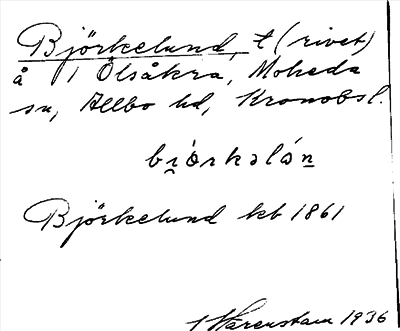 Björkelund, t (rivet)
å 1 Ölsåkra, Moheda
sn, Allbo hd, Kronobsl.
bi̯örkəlón
Björkelund kb 1861
1936